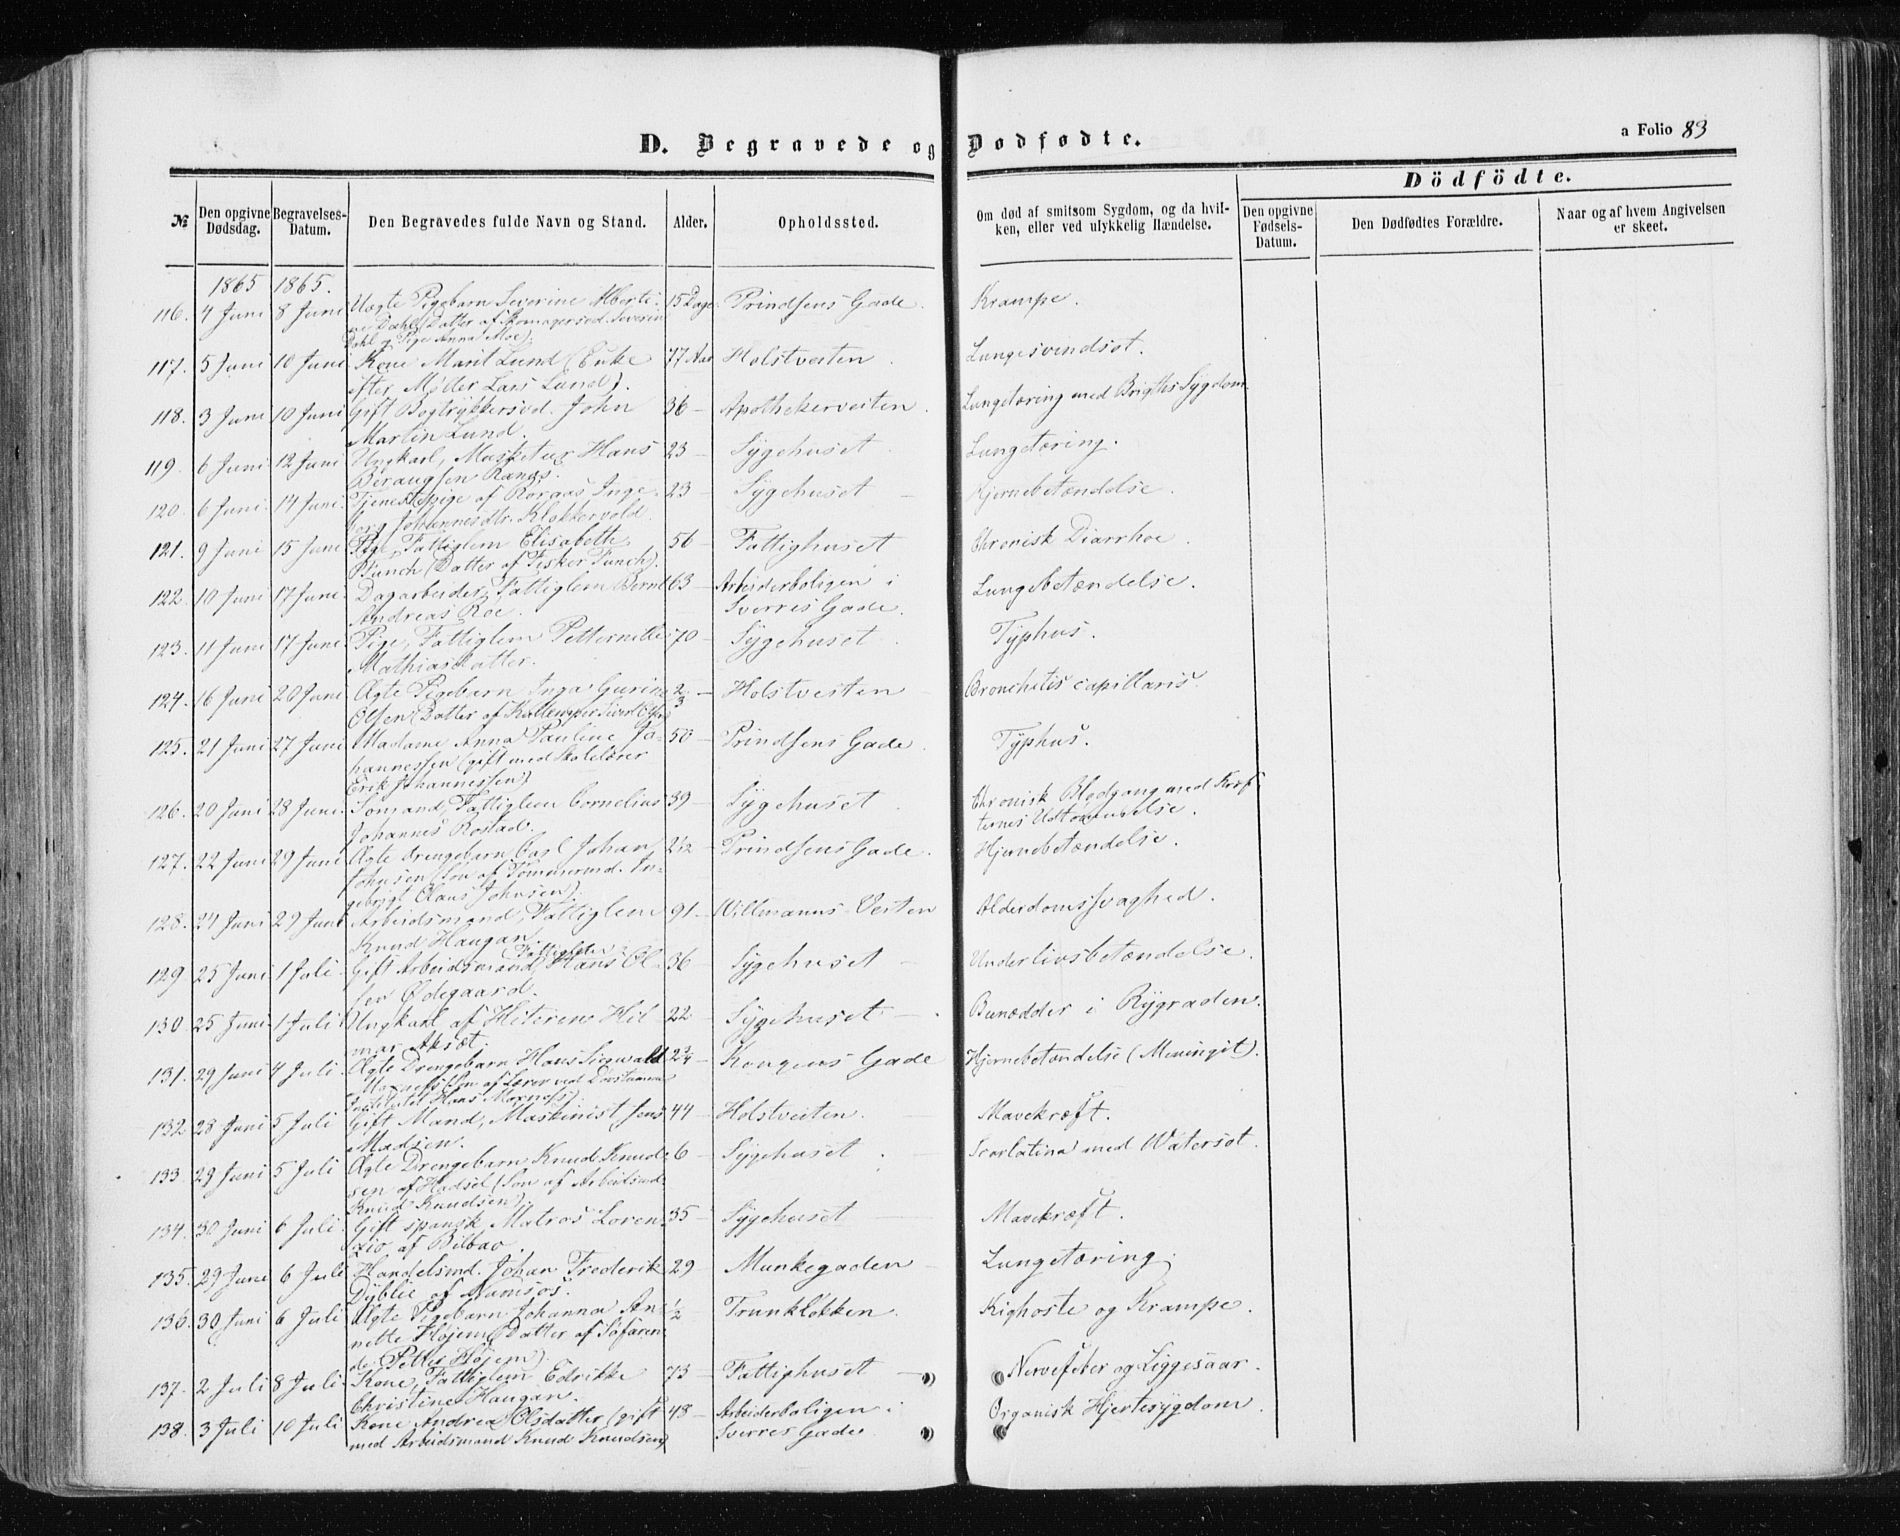 a Folio 83
D. Begravede og Dødfødte.
Dödfödte.
№
Den opgivne Dødsdag.
Begravelses-Datum.
Den Begravedes fulde Navn og Stand.
Alder.
Opholdssted.
Om død af smitsom Sygdom, og da hvilken, eller ved ulykkelig Hændelse.
Den opgivne Fødsels-Datum.
Den Dødfødtes Forældre.
Naar og af hvem Angivelsen er skeet.
1865 1865.
116. 4 Juni 8 Juni Uægte Pigebarn Severine Alberti- 15 Dage Prindsens Gade. Krampe.
ne Dahl (Datter af Skomagersvd. Severin
Dahl og Pige Anna Moe).
117. 5 Juni 10 Juni Kone Marit Lund (Enke 77 Aar Holstveiten. Lungesvindsot.
efter Møller Lars Lund).
118. 3 Juni 10 Juni Gift Bogtrykkersvd. John 36 – Apothekerveiten. Lungetæring med Brigths Sygdom.
Martin Lund.
119. 6 Juni 12 Juni Ungkarl, Musketer Hans 23 – Sygehuset Lungetæring.
Beraugsen Ranes.
120. 6 Juni 14 Juni Tjenestepige af Roraas Inge- 23 – Sygehuset – Hjernebetændelse.
borg Johannesdtr. Klokkervold.
121. 9 Juni 15 Juni Pige, Fattiglem Elisabeth 56 – Fattighuset Chronisk Diarrhoe.
Funch (Datter af Fisker Funch).
122. 10 Juni 17 Juni Dagarbeider, Fattiglem Bernt 63 – Arbeiderboligen i Lungebetændelse.
Andreas Roe. Sverres Gade.
123. 11 Juni 17 Juni Pige, Fattiglem Petternille 70 – Sygehuset Typhus.
Mathiasdatter.
124. 16 Juni 20 Juni Ægte Pigebarn Inga Gurine 2/3 – Holstveiten – Bronchitis capillaris.
Olsen (Datter af Sivert Olsen
125. 21 Juni 27 Juni Madame Anna Pauline Jo- 50 – Prindsens Gade. Typhus.
hannessen (gift med Skolelærer
Erik Johannessen)
126. 20 Juni 28 Juni Sømand, Fattiglem Cornelius 39 – Sygehuset – Chronisk Blodgang med Kræf-
Johannes Rostad. ternes Udtømmelse.
127. 22 Juni 29 Juni Ægte Drengebarn Carl Johan 2½ – Prindsens Gade. Hjernebetændelse.
Johnsen (Søn af Tømmermd. In-
gebrigt Olaus Johnsen).
128. 24 Juni 29 Juni Arbeidsmand, Fattiglem 91 – Willmanns Veiten Alderdomssvaghed.
Knud Haugan.
129 25 Juni 1 Juli Gift Arbeidsmand, Fattiglem Hans Ol- 36 – Sygehuset – Underlivsbetændelse.
sen Ødegaard.
130 25 Juni 1 Juli Ungkarl af Hiteren Hil- 22 – Sygehuset – Beenædder i Rygraden.
mar Akset.
131. 29 Juni 4 Juli Ægte Drengebarn Hans Sigwald 2¾ – Kongens Gade Hjernebetændelse (Meningit).
Moxness (Søn af Lærer ved Døvstumme
Institutet Hans Moxness).
132 28 Juni 5 Juli Gift Mand, Maskinist Jens 44 – Holstveiten. – Mavekræft.
Madsen.
133. 29 Juni 5 Juli Ægte Drengebarn Knud Knud- 6 – Sygehuset Scarlatina med Watersot.
sen af Hadsel (Søn af Arbeidsmd.
Knud Knudsen).
134. 30 Juni 6 Juli. Gift spansk Matros Loren- 35 – Sygehuset – Mavekræft.
zio af Bilbao.
135. 29 Juni 6 Juli Handelsmd. Johan Frederik 29 – Munkegaden – Lungetæring.
Dyblie af Namsos.
136. 30 Juni 6 Juli Ægte Pigebarn Johanna An- ½ – Trunkløkken Kighoste og Krampe.
nette Højem (Datter af Søfaren-
de Petter Højem).
137. 2 Juli 8 Juli. Kone, Fattiglem Edrikke 73 – Fattighuset – Nervefeber og Liggesaar.
Christine Haugan.
138. 3 Juli 10 Juli Kone Andrea Olsdatter (gift 48 – Arbeiderboligen i Organisk Hjertesygdom.
med Arbeidsmand Knud Knudsen) Sverres Gade